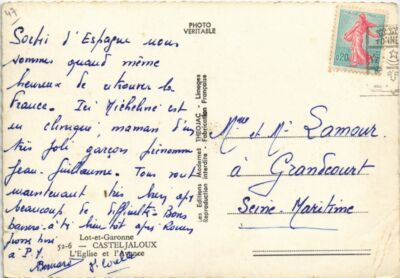 47
PHOTO
VERITABLE
Sorti d'Espagne nous
sommes quand même
heureux de retrouver la
France. Ici Micheline est
en clinique, maman d'un
très joli garçon prénommé
Jean-Guillaume. Tous vont
maintenant très bien après
beaucoup de difficultés. Bons
baisers à ti bientôt après
à P.
Bernard
Lot-et-Garonne
52-6 - CASTELJALOUX
L'Eglise et l'Avance
Les Editions Modernes THEOJAC - Limoges
Reproduction interdite - Fabrication Française
0,20
Mme et Mr Lamour.
à Grandcourt
Seine-Maritime